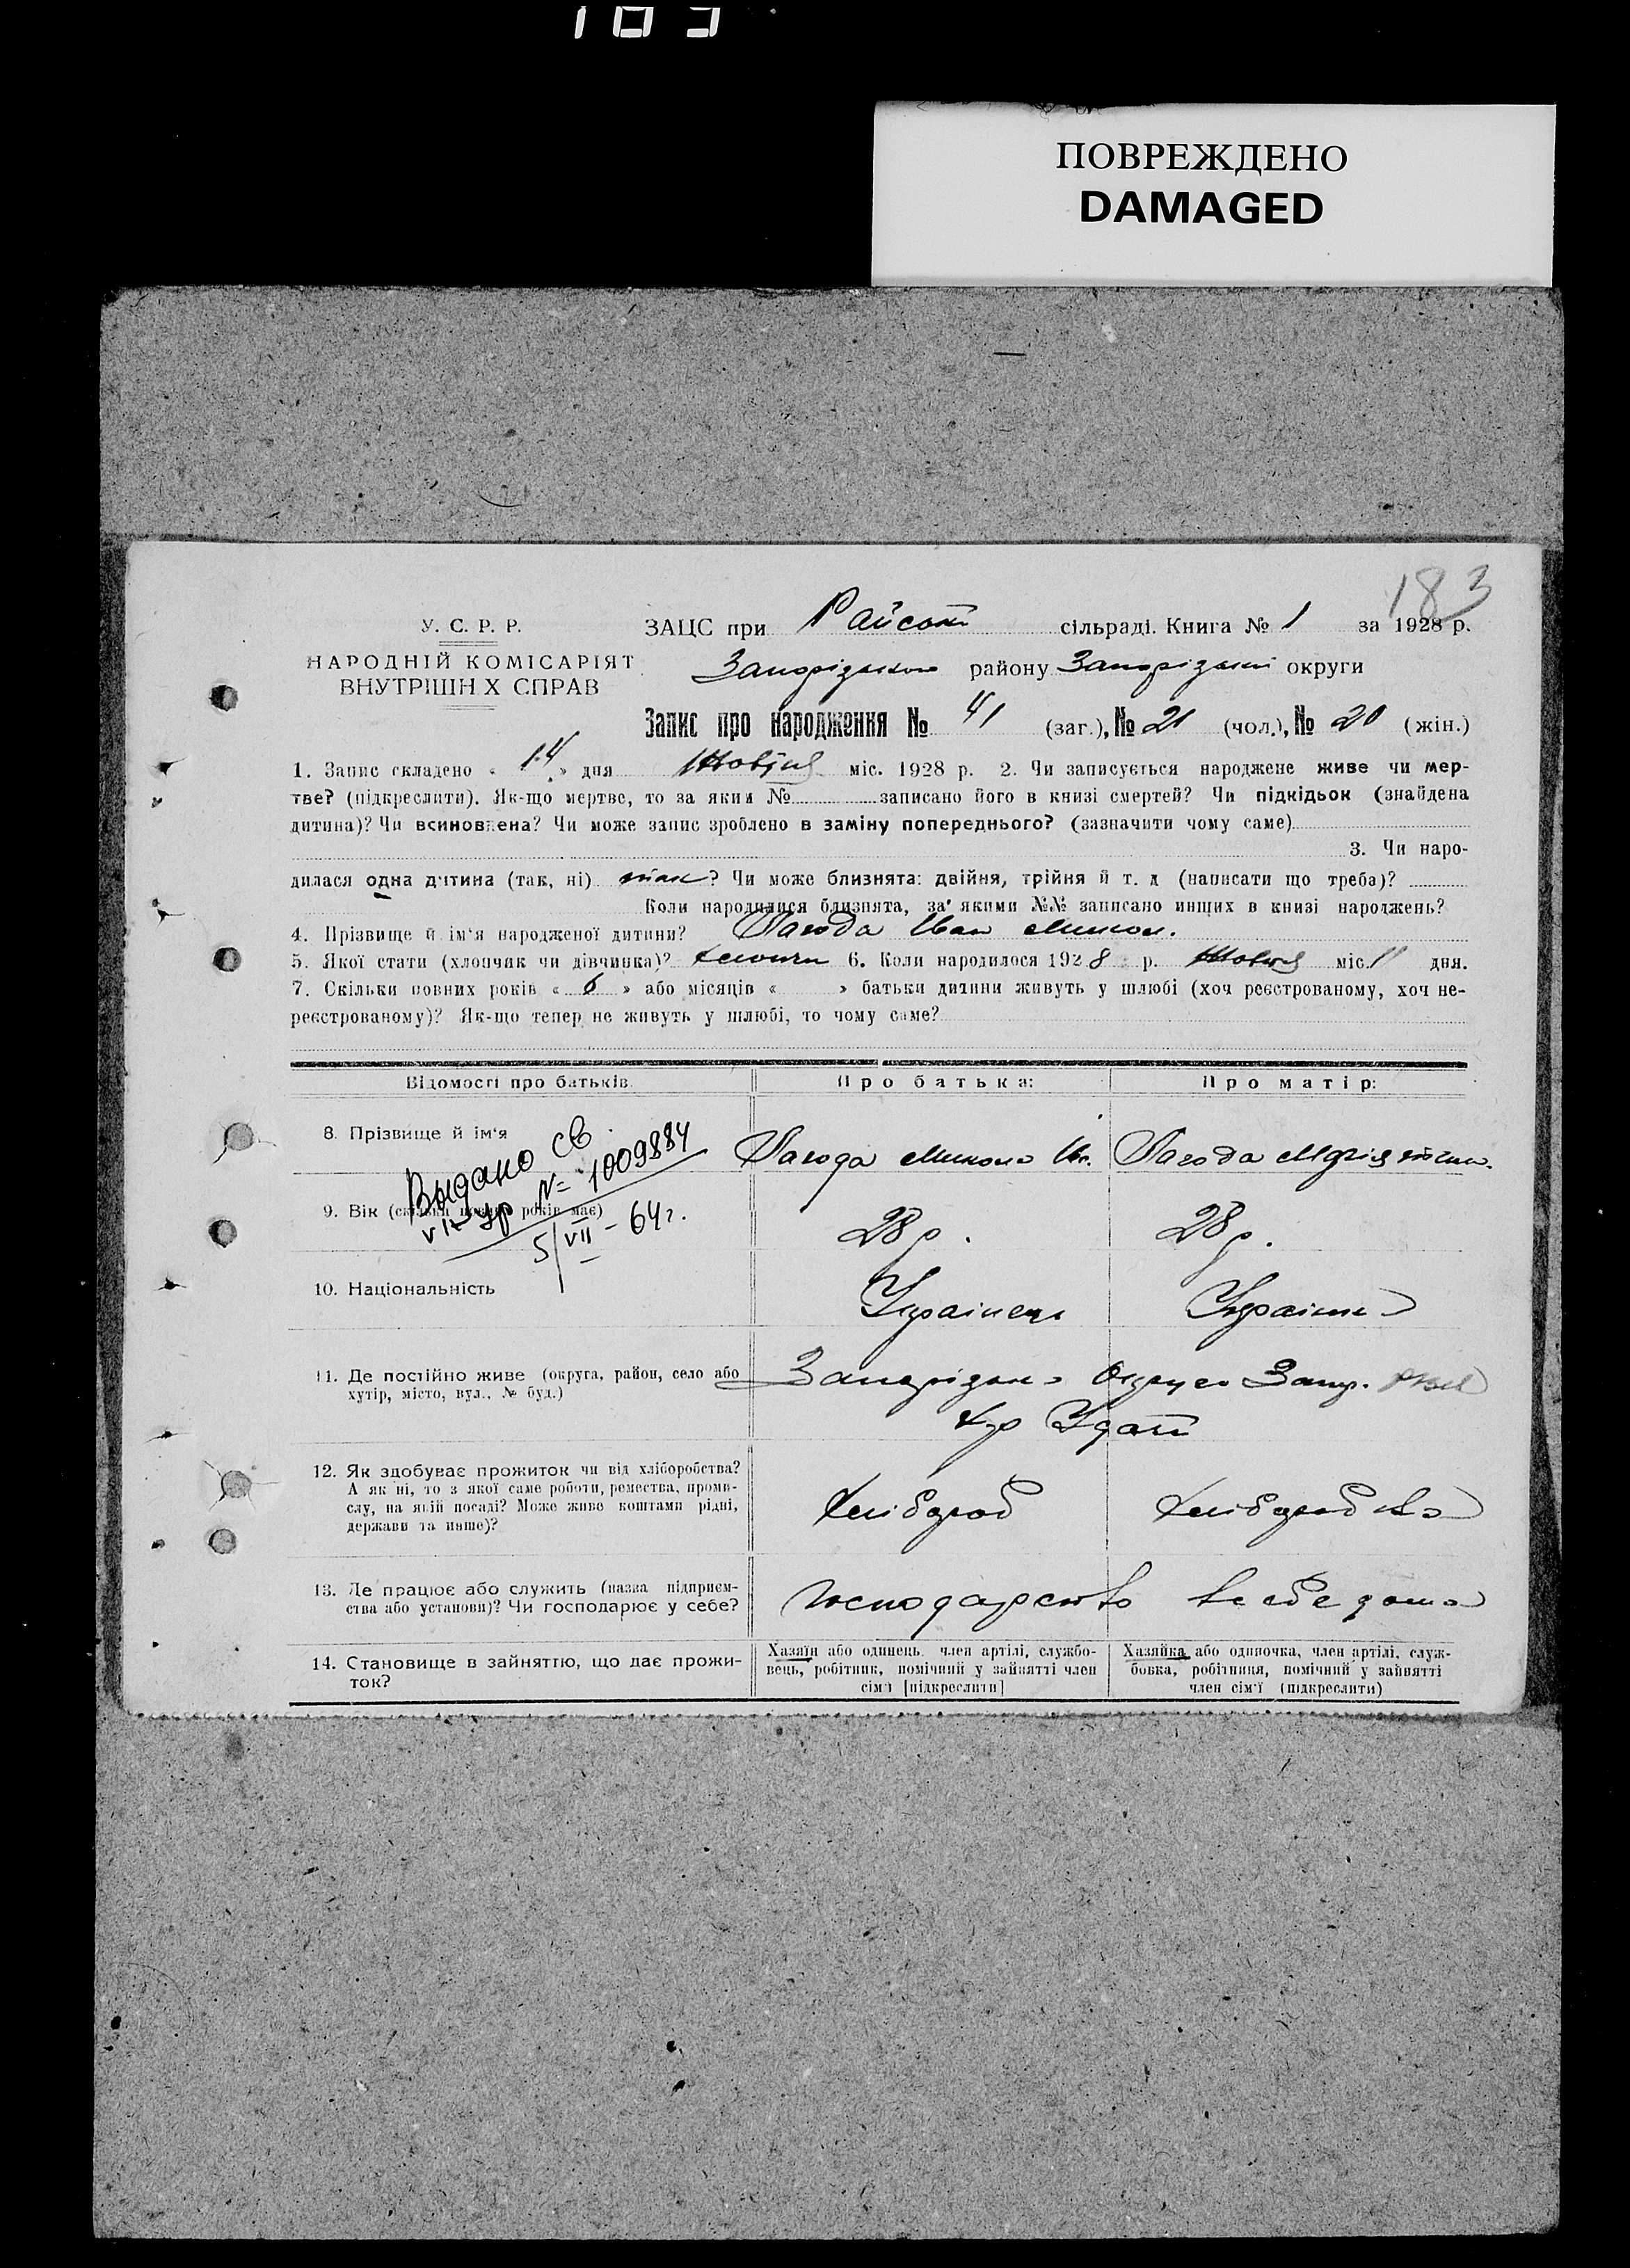 183
ПОВРЕЖДЕНО
DAMAGED
183
У. С. Р. Р.
НАРОДНІЙ КОМІСАРІЯТ
ВНУТРІШН Х СПРАВ
ЗАЦС при сільраді. Книга № 1 за 1928 р.
району округи
Запис про народження № 41 (заг.), № 21 (чол.), № 20 (жін.)
1. Запис складено « 14 » дня Жовтня міс. 1928 р. 2. Чи записується народжене живе чи мер-
тве? (підкреслити). Як-що мертве, то за яким № записано його в книзі смертей? Чи підкідьок (знайдена
дитина)? Чи всиновлена? Чи може запис зроблено в заміну попереднього? (зазначити чому саме)
3. Чи наро-
дилася одна дитина (так, ні) так? Чи може близнята: двійня, трійня й т. д (написати що треба)?
Коли народилися близнята, за якими №№ записано инших в книзі народжень?
4. Прізвище й ім'я народженої дитини? Иван Микол.
5. Якої стати (хлопчик чи дівчинка)? хлопчик 6. Коли народилося 1928 р. Жовтня міс. дня.
7. Скільки повних років « 6 » або місяців « » батьки дитини живуть у шлюбі (хоч реєстрованому, хоч не-
реєстрованому)? Як-що тепер не живуть у шлюбі, то чому саме?
Відомості про батьків
Про батька:
Про матір:
8. Прізвище й ім'я
Микола Ив.
Выдано св
VI-УР № 1009884
5/VII-64г.
9. Вік (скільки повних років має)
28 р.
28 р.
10. Національність
Українець
Українка
11. Де постійно живе (округа, район, село або
хутір, місто, вул., № буд.)
Запорізька Округа Запор.
хут
12. Як здобуває прожиток чи від хліборобства?
А як ні, то з якої саме роботи, ремества, проми-
слу, на якій посаді? Може живе коштами рідні,
держави та инше)?
Хлібороб
Хлібороб ка
13. Де працює або служить (назва підприєм-
ства або установи)? Чи господарює у себе?
господарство в себе дома
14. Становище в зайняттю, що дає прожи-
ток?
Хазяїн або одинець, член артілі, службо-
вець, робітник, помічний у зайнятті член
сім'ї [підкреслити]
Хазяйка або одиночка, член артілі, служ-
бовка, робітниця, помічний у зайнятті
член сім'ї (підкреслити)